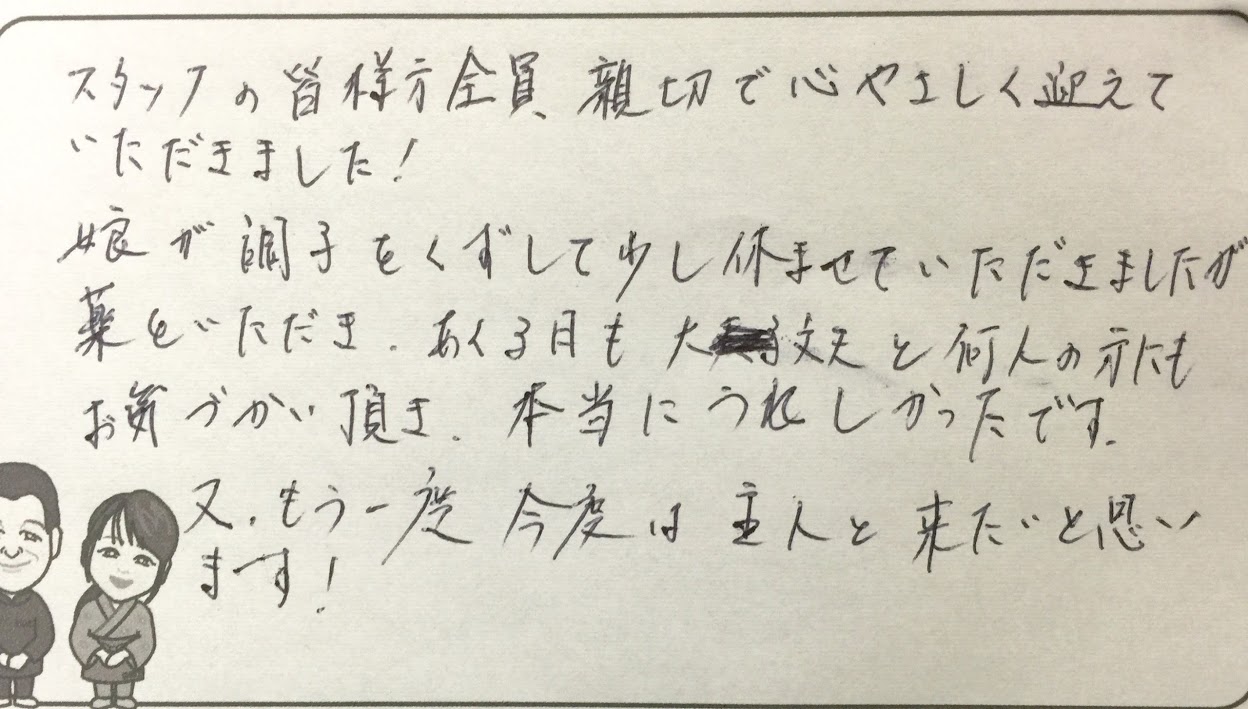 スタッフの皆様方全員、親切で心やさしく迎えて
いただきました!
娘が調子をくずして少し休ませていただきましたが
薬をいただき、あくる日も大丈夫と何人の方にも
お気づかい頂き、本当にうれしかったです。
又、もう一度今度は主人と来たいと思い
ます!